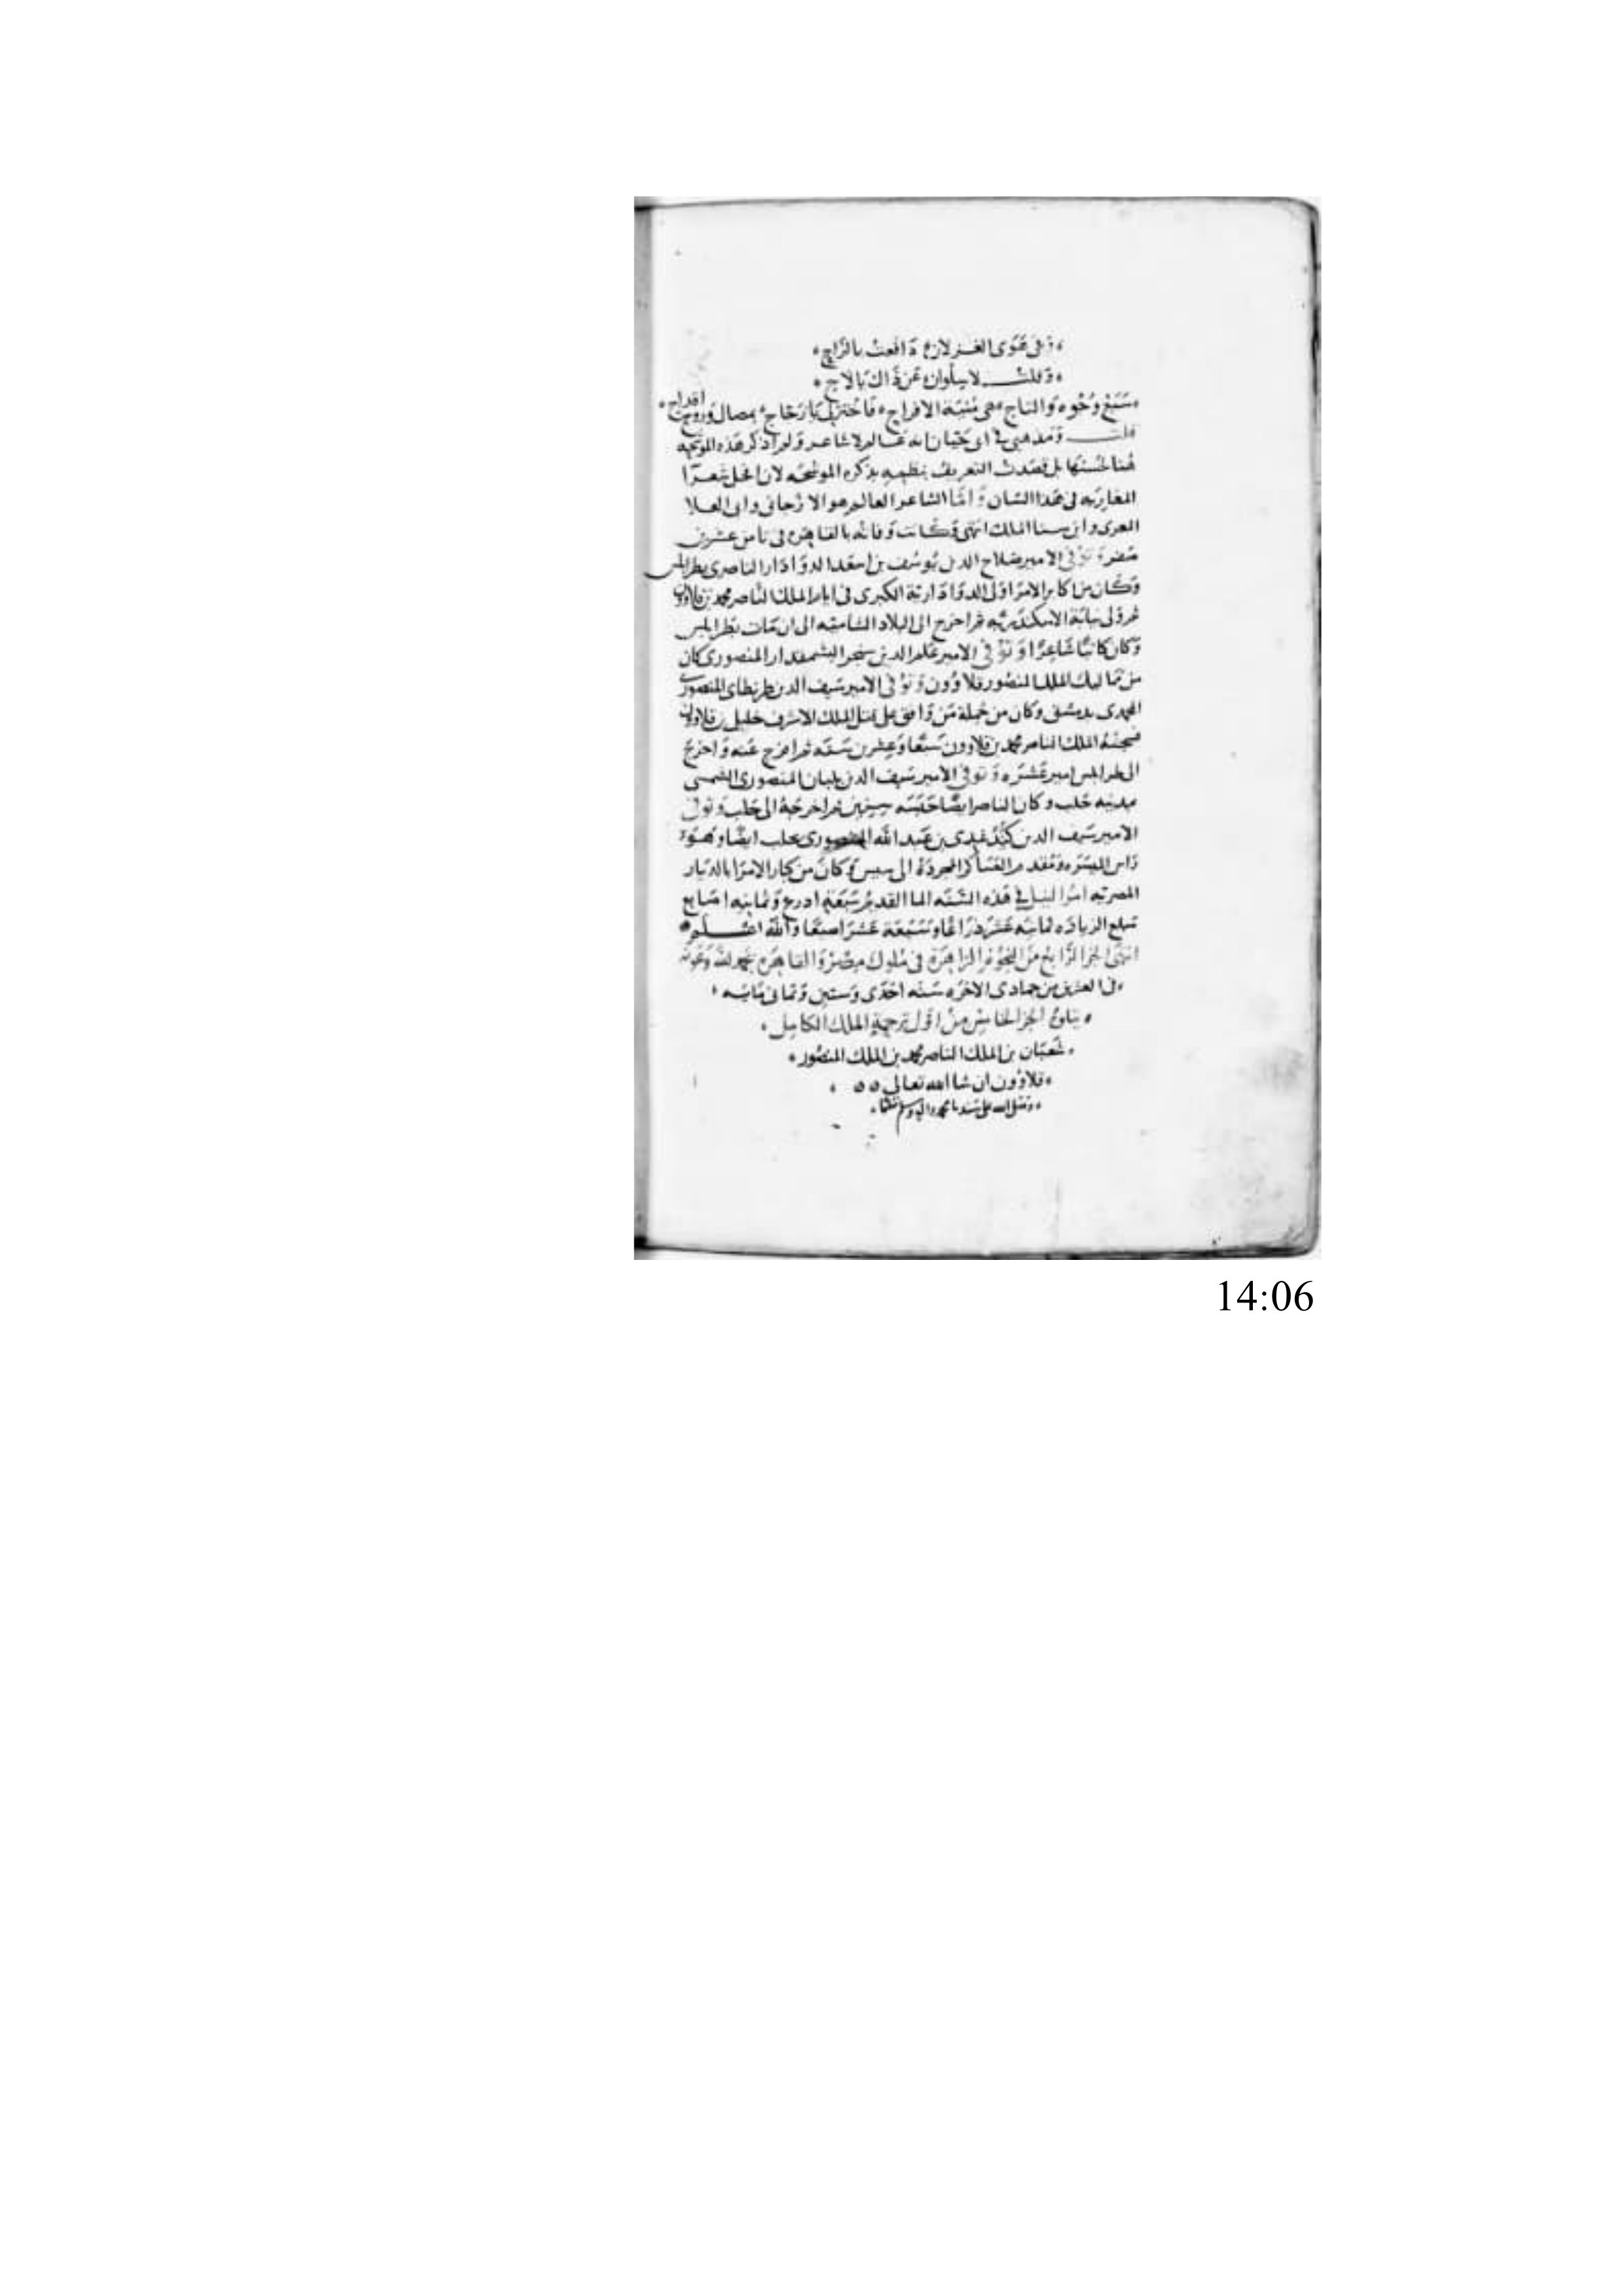 وفي هوى الغزلان دافعت بالراح
وقلت لا سلوان عن ذاك يالاح
سبع وجوه والتاج هي منية الافراح فاختر لي يا زجاج بمصال وزوج اقداح
قلت ومذهبي في ابي حيان انه عالم لا شاعر ولم اذكر هذه الموشحه
هنا لحسنها بل قصدت التعريف بنظمه بذكر هذه الموشحه لانه افحل شعرا
المغاربه في هذا الشان واما الشاعر العالم هو الارجاني وابي العلا
المعري وابن سنا الملك انتهى وكانت وفاته بالقاهره في ثامن عشرين
صفر وتوفي الامير صلاح الدين يوسف بن اسعد الدوادار الناصري بطرابلس
وكان من اكابر الامرا ولي الدوادارية الكبرى في ايام الملك الناصر محمد بن قلاوون
ثم ولي نيابة الاسكندريه ثم اخرج الى البلاد الشاميه الى ان مات بطرابلس
وكان كاتبا شاعرا وتوفي الامير علم الدين سنجر البشمقدار المنصوري كان
من مماليك الملك المنصور قلاوون وتوفي الامير سيف الدين طرنطاي المنصوري
المحمدي بدمشق وكان من جملة من وافق على قتل الملك الاشرف خليل بن قلاوون
فسجنه الملك الناصر محمد بن قلاوون سبعا وعشرين سنه ثم افرج عنه واخرج
الى طرابلس امير عشره وتوفي الامير سيف الدين بلبان المنصوري الشمسي
بمدينه حلب وكان الناصر ايضا حبسه سنين ثم اخرجه الى حلب وتوفي
الامير سيف الدين كندغدي بن عبد الله المنصوري بحلب ايضا وهو
راس الميسره ومقدم العساكر المجردة الى سيس وكان من كبار الامرا بالديار
المصريه امر النيل في هذه السنه الما القديم سبعة اذرع وثمانيه اصابع
مبلغ الزياده ثمانيه عشر ذراعا وسبعة عشر اصبعا والله اعلم
انتهى الجز الرابع من النجوم الزاهرة في ملوك مصر والقاهره بحمد الله وعونه
في العشرين من جمادى الاخره سنه احدى وستين وثماني مايه
يتلوه الجز الخامس من اول ترجمة الملك الكامل
شعبان بن الملك الناصر محمد بن الملك المنصور
قلاوون ان شا الله تعالى
وصلى الله على سيدنا محمد واله وسلم
14:06